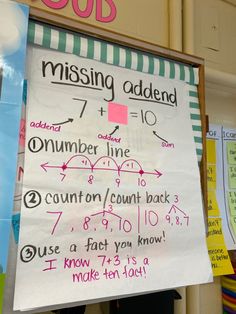 missing addend
7 + = 10
addend
addend
sum
① number line
+1 +1 +1
7 8 9 10
② counton/count back
3 3
7, 8, 9, 10 | 10 9, 8, 7
③ use a fact you know!
I know 7+3 is a
make ten fact!